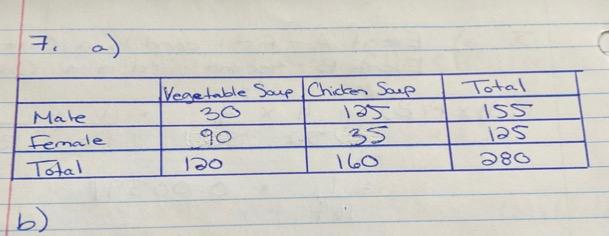 7. a)
Vegetable Soup Chicken Soup Total
Male 30 125 155
Female 90 35 125
Total 120 160 280
b)